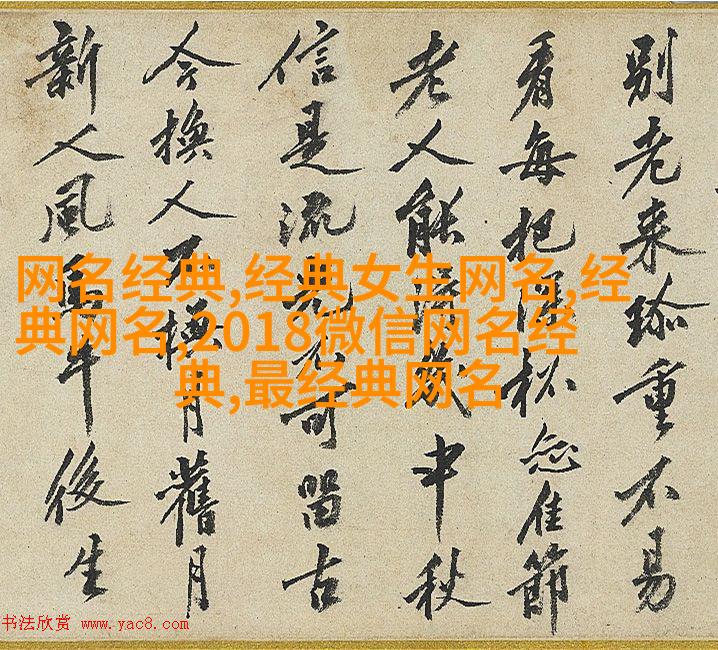 别老来珎重不易
看每把深杯佳節
老人能得幾中秋
信是流光不可留古
今換人不換月舊月
新人風馬牛後生
网名经典,经典女生网名,经
典网名,2018微信网名经
典,最经典网名
书法欣赏 www.yac8.com